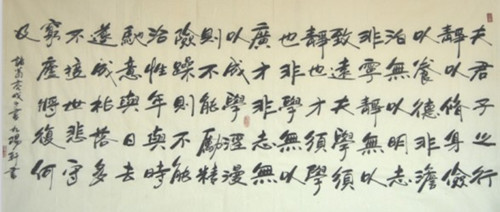 夫君子之行
靜以脩身儉
以養德非澹
泊無以明志
非寧靜無以
致遠夫學須
靜也才須學
也非學無以
廣才非志無
以成學淫漫
則不能勵精
險躁則不能
治性年與時
馳意與日去
遂成枯落多
不接世悲守
窮廬將復何
及